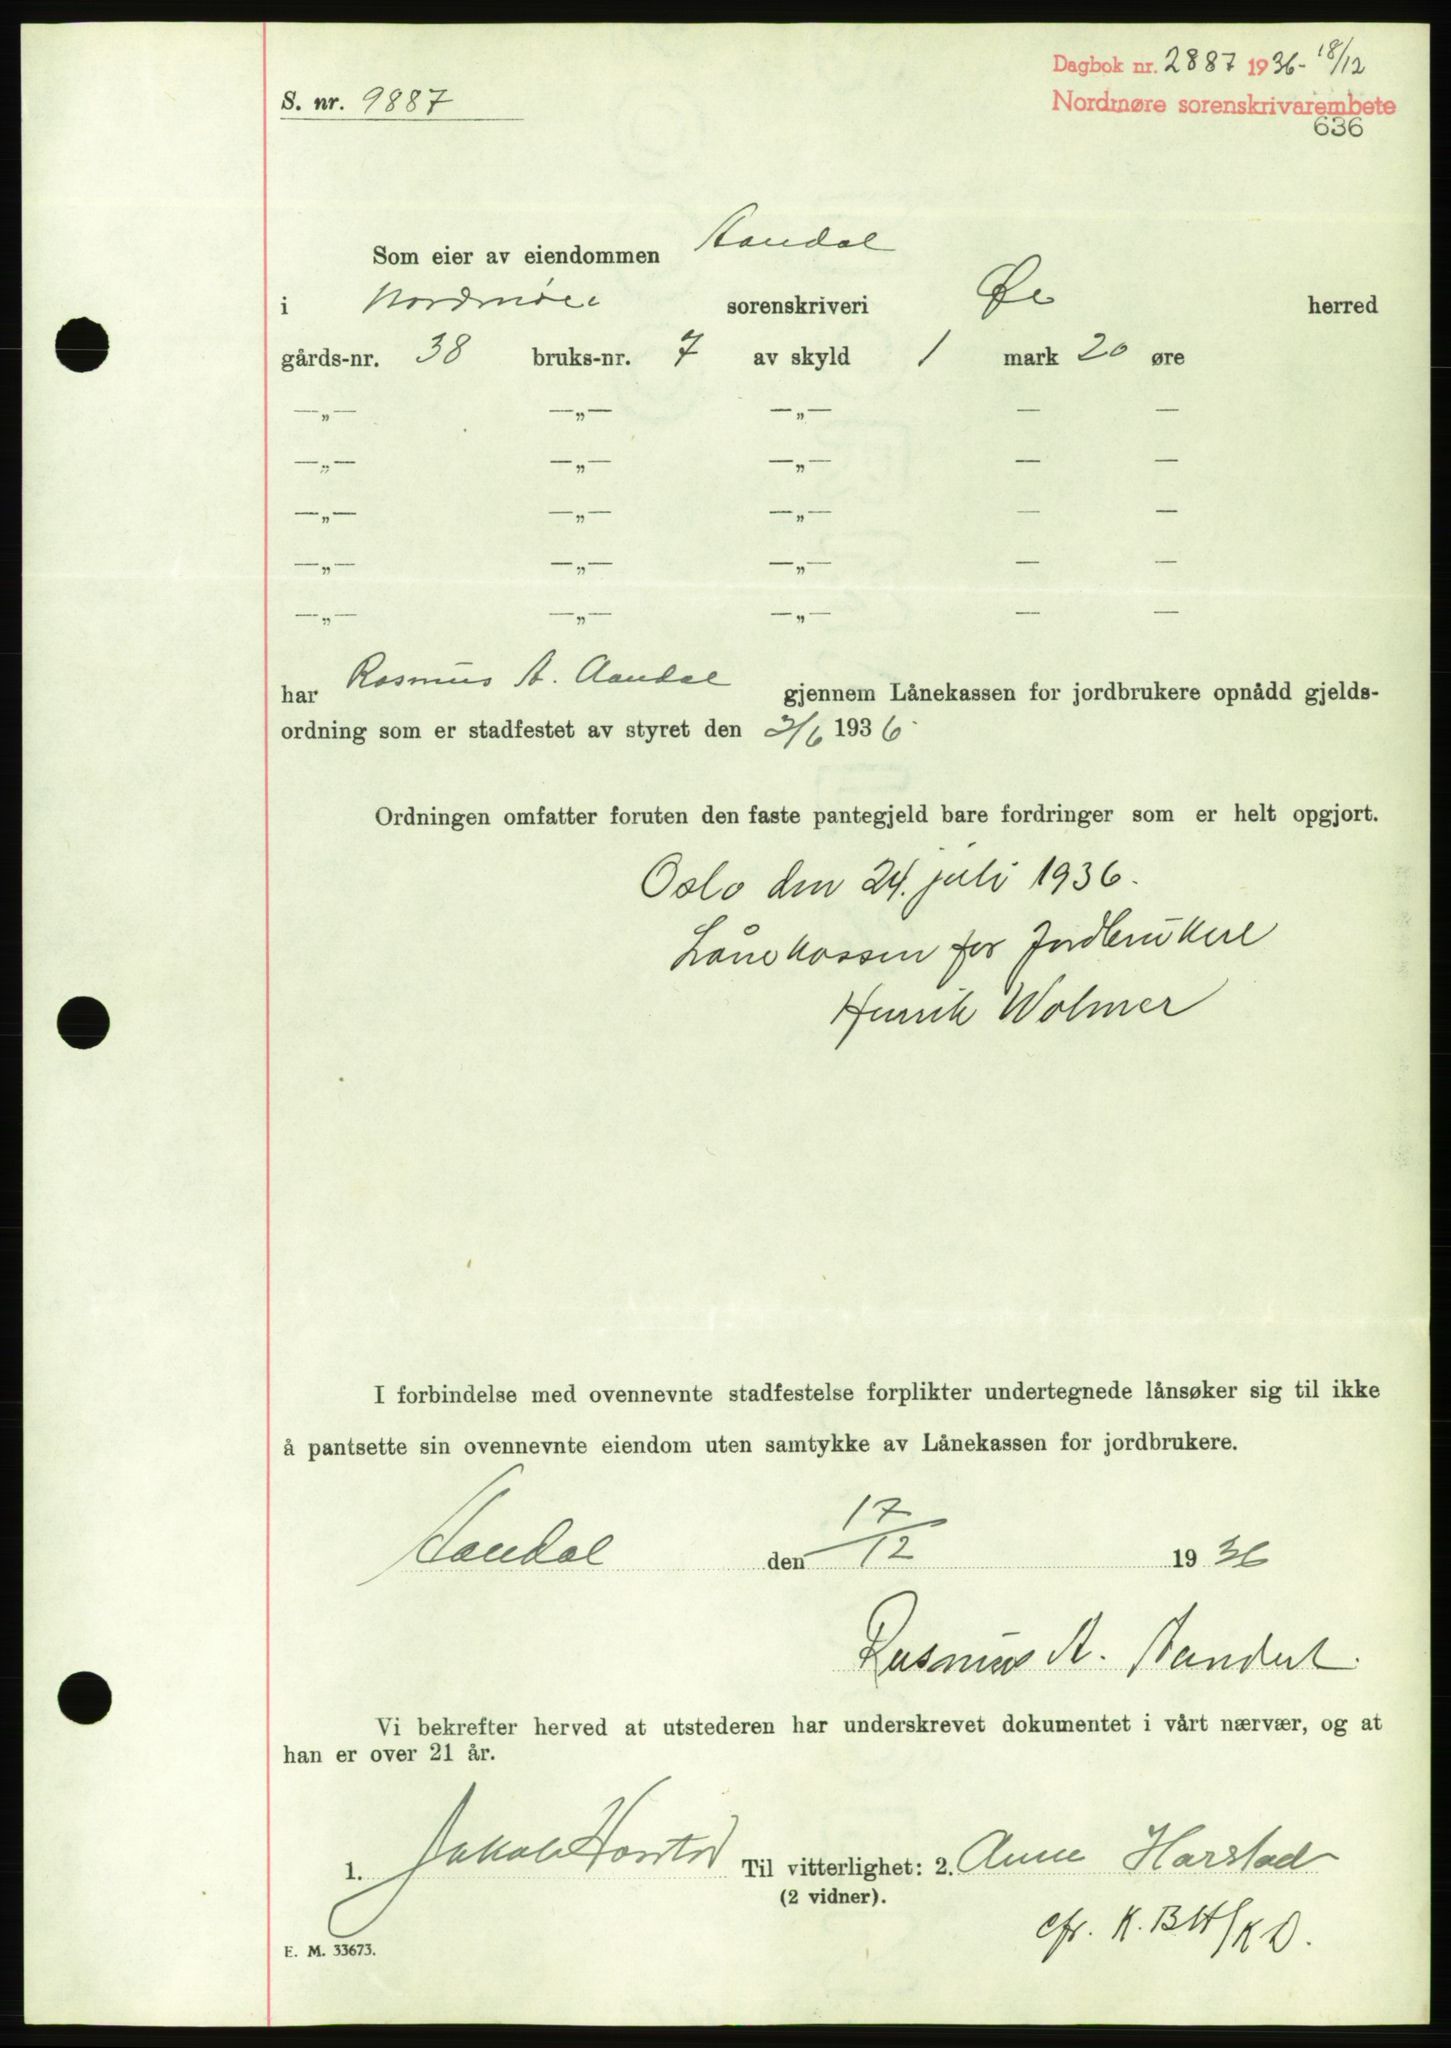 Dagbok nr. 2887 1936 - 18/12
Nordmøre sorenskrivarembete
636
S. nr. 9887
Som eier av eiendommen Aandal
i Nordmøre sorenskriveri Øre herred
gårds-nr. 38 bruks-nr. 7 av skyld 1 mark 20 øre
—„— —„— —„— — —
—„— —„— —„— — —
—„— —„— —„— — —
—„— —„— —„— — —
—„— —„— —„— — —
har Rasmus A. Aandal gjennem Lånekassen for jordbrukere opnådd gjelds-
ordning som er stadfestet av styret den 3/6 1936.
Ordningen omfatter foruten den faste pantegjeld bare fordringer som er helt opgjort.
Oslo den 24. juli 1936.
Lånekassen for Jordbrukere
Henrik Wolmer
I forbindelse med ovennevnte stadfestelse forplikter undertegnede lånsøker sig til ikke
å pantsette sin ovennevnte eiendom uten samtykke av Lånekassen for jordbrukere.
Aandal den 17/12 1936
Rasmus A. Aandal.
Vi bekrefter herved at utstederen har underskrevet dokumentet i vårt nærvær, og at
han er over 21 år.
1. Jakob Harstad Til vitterlighet: 2. Anne Harstad
(2 vidner).
cfr. K. BH/KD.
E. M. 33673.